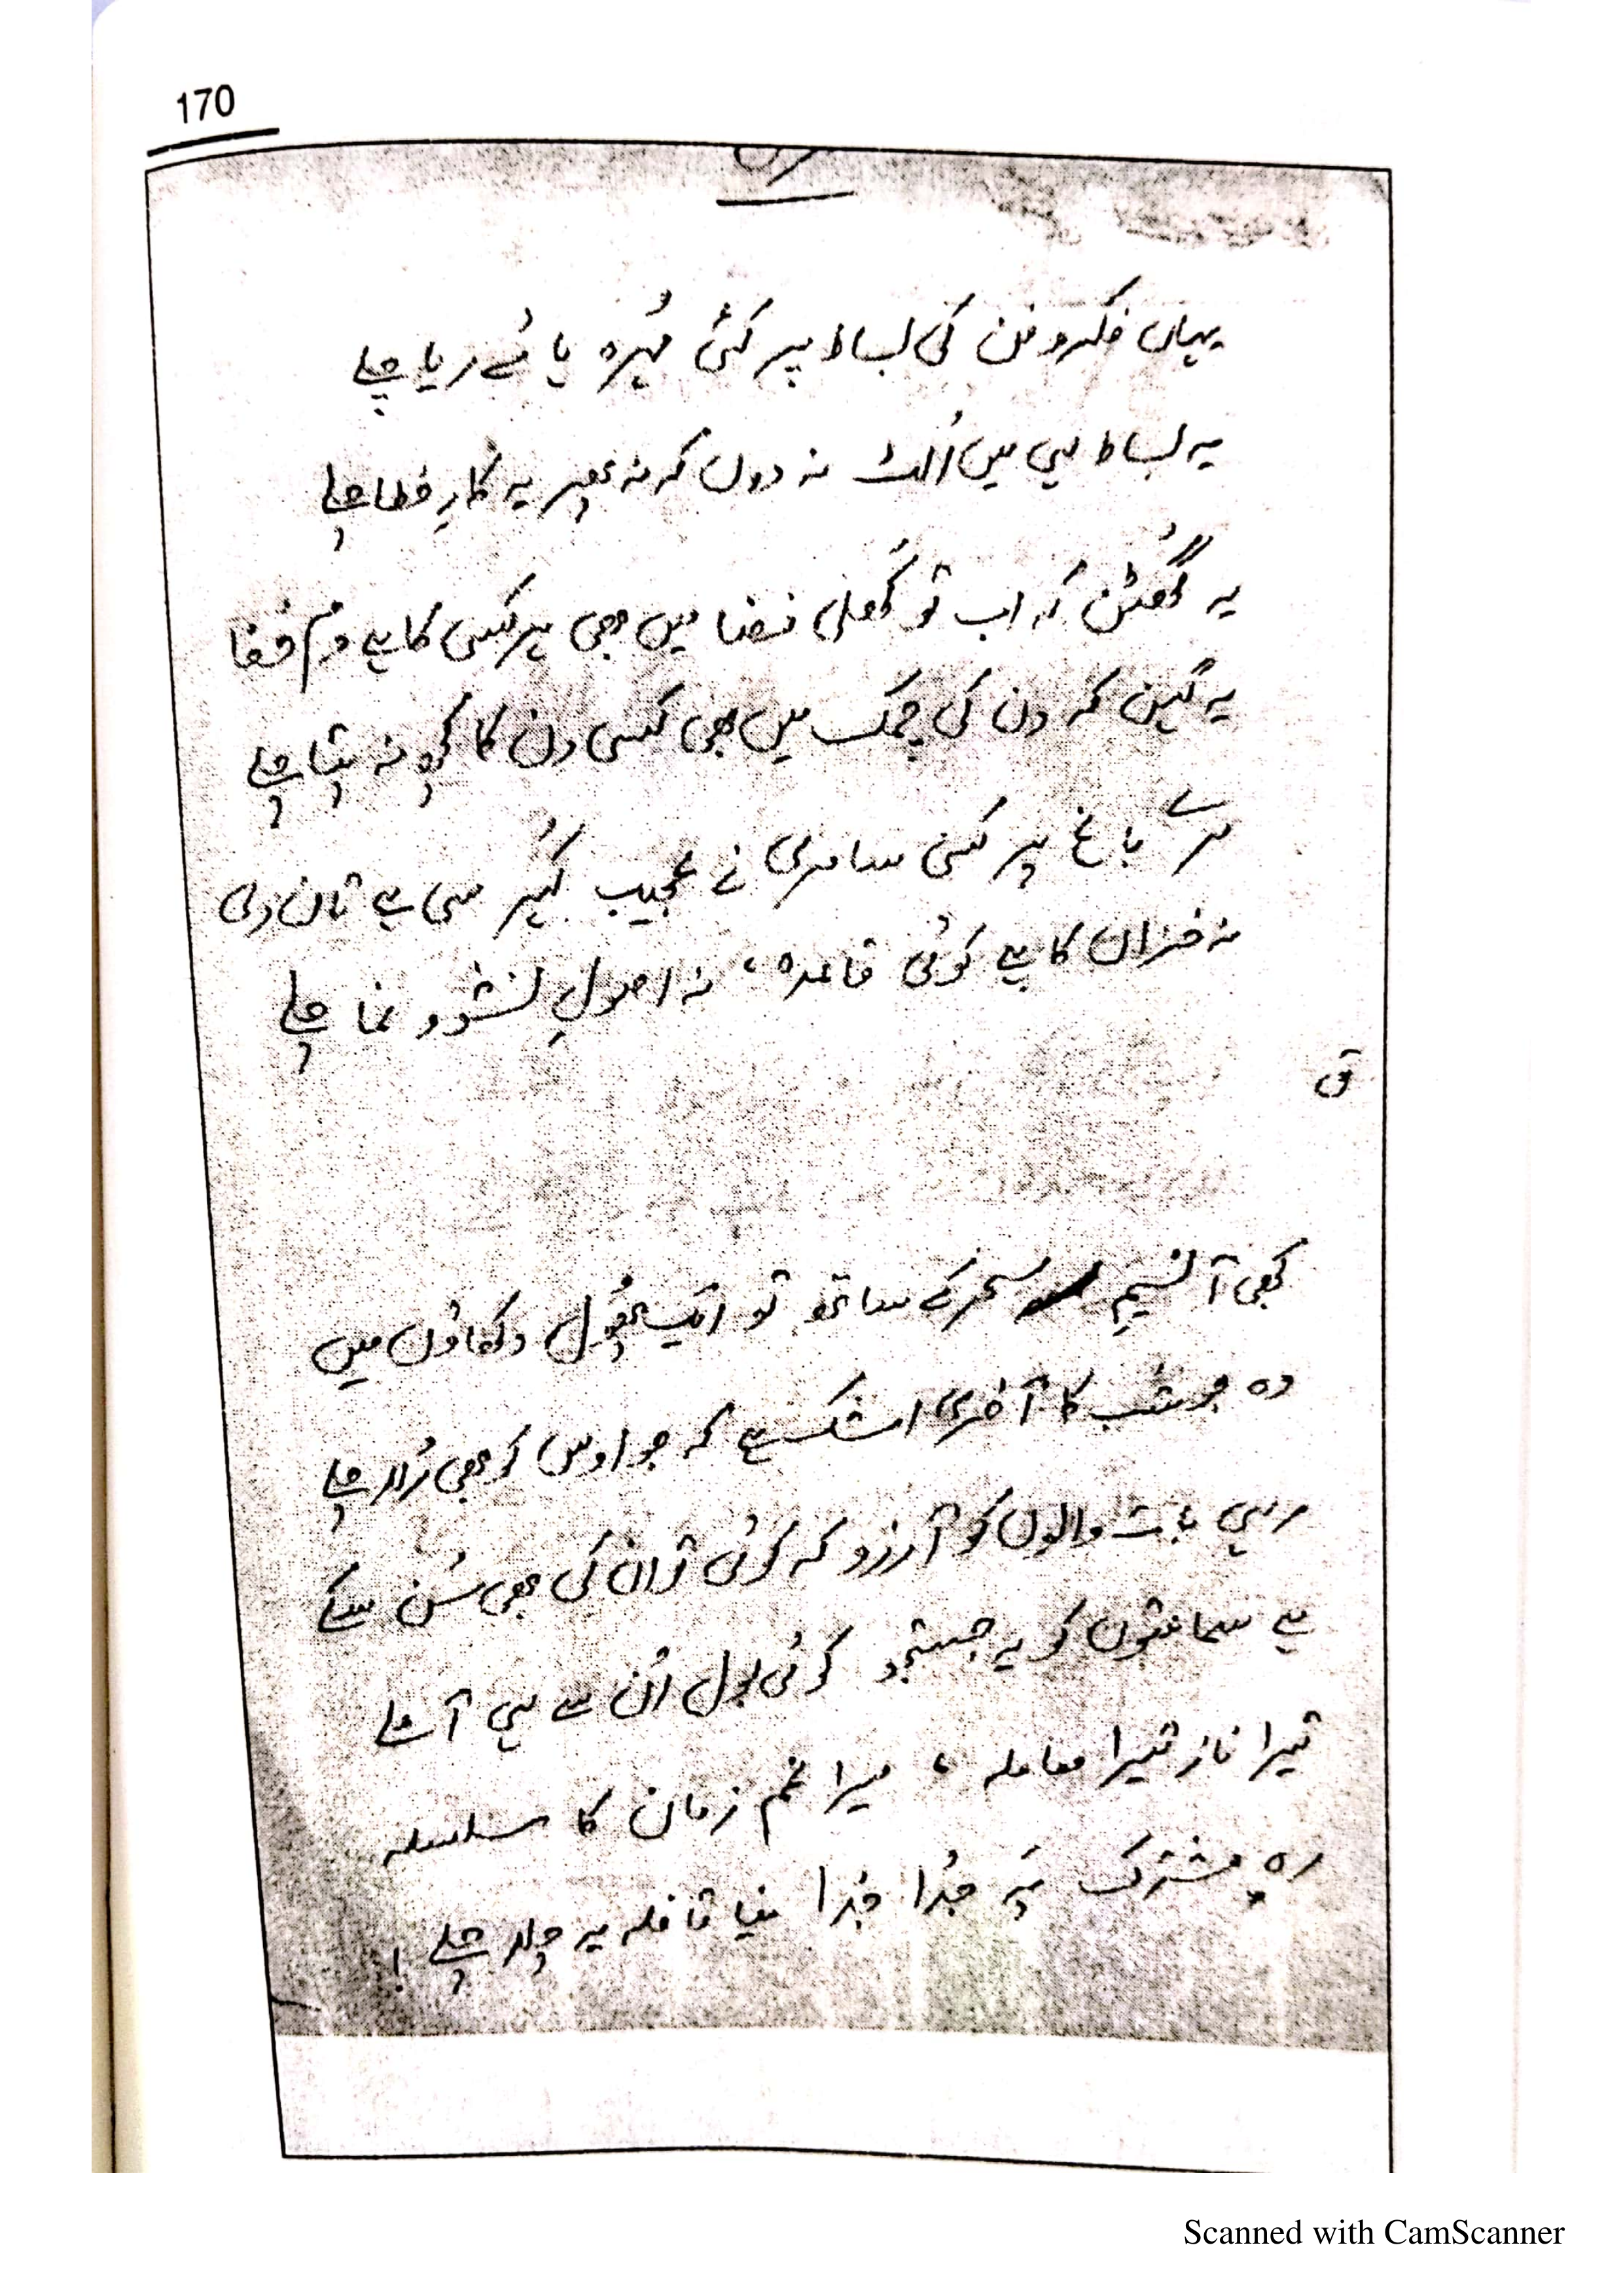 170
یہاں فکر و فن کی بساط پر کئی مُہرہ ہائے ریا چلے
یہ بساط ہی میں اُلٹ نہ دوں کہ نہ پھر یہ کارِ خطا چلے
یہ گُھٹن کہ اب تو کُھلی فضا میں بھی ہر کسی کا ہے دم خفا
یہ گہن کہ دن کی چمک میں بھی کسی دن کا کچھ نہ پتا چلے
مرے باغ پر کسی سامری نے عجیب کُہر سی ہے تان دی
نہ خزاں کا ہے کوئی قاعدہ، نہ اصولِ نشوونما چلے
ق
کبھی آ نسیمِ سحر کے ساتھ تو ایک پھُول دکھاؤں میں
وہ جو شب کا آخری اشک ہے کہ جو اوس کو بھی رُلا چلے
رہی بات والوں کو آرزو کہ کوئی تو ان کی بھی سُن سکے
ہے سماعتوں کو یہ جستجو کوئی بول اُن سے ہی آ ملے
تیرا ناز تیرا معاملہ، میرا غم زمان کا سلسلہ
رہِ مشترک پہ جُدا جُدا نیا قافلہ یہ چلا چلے!
Scanned with CamScanner